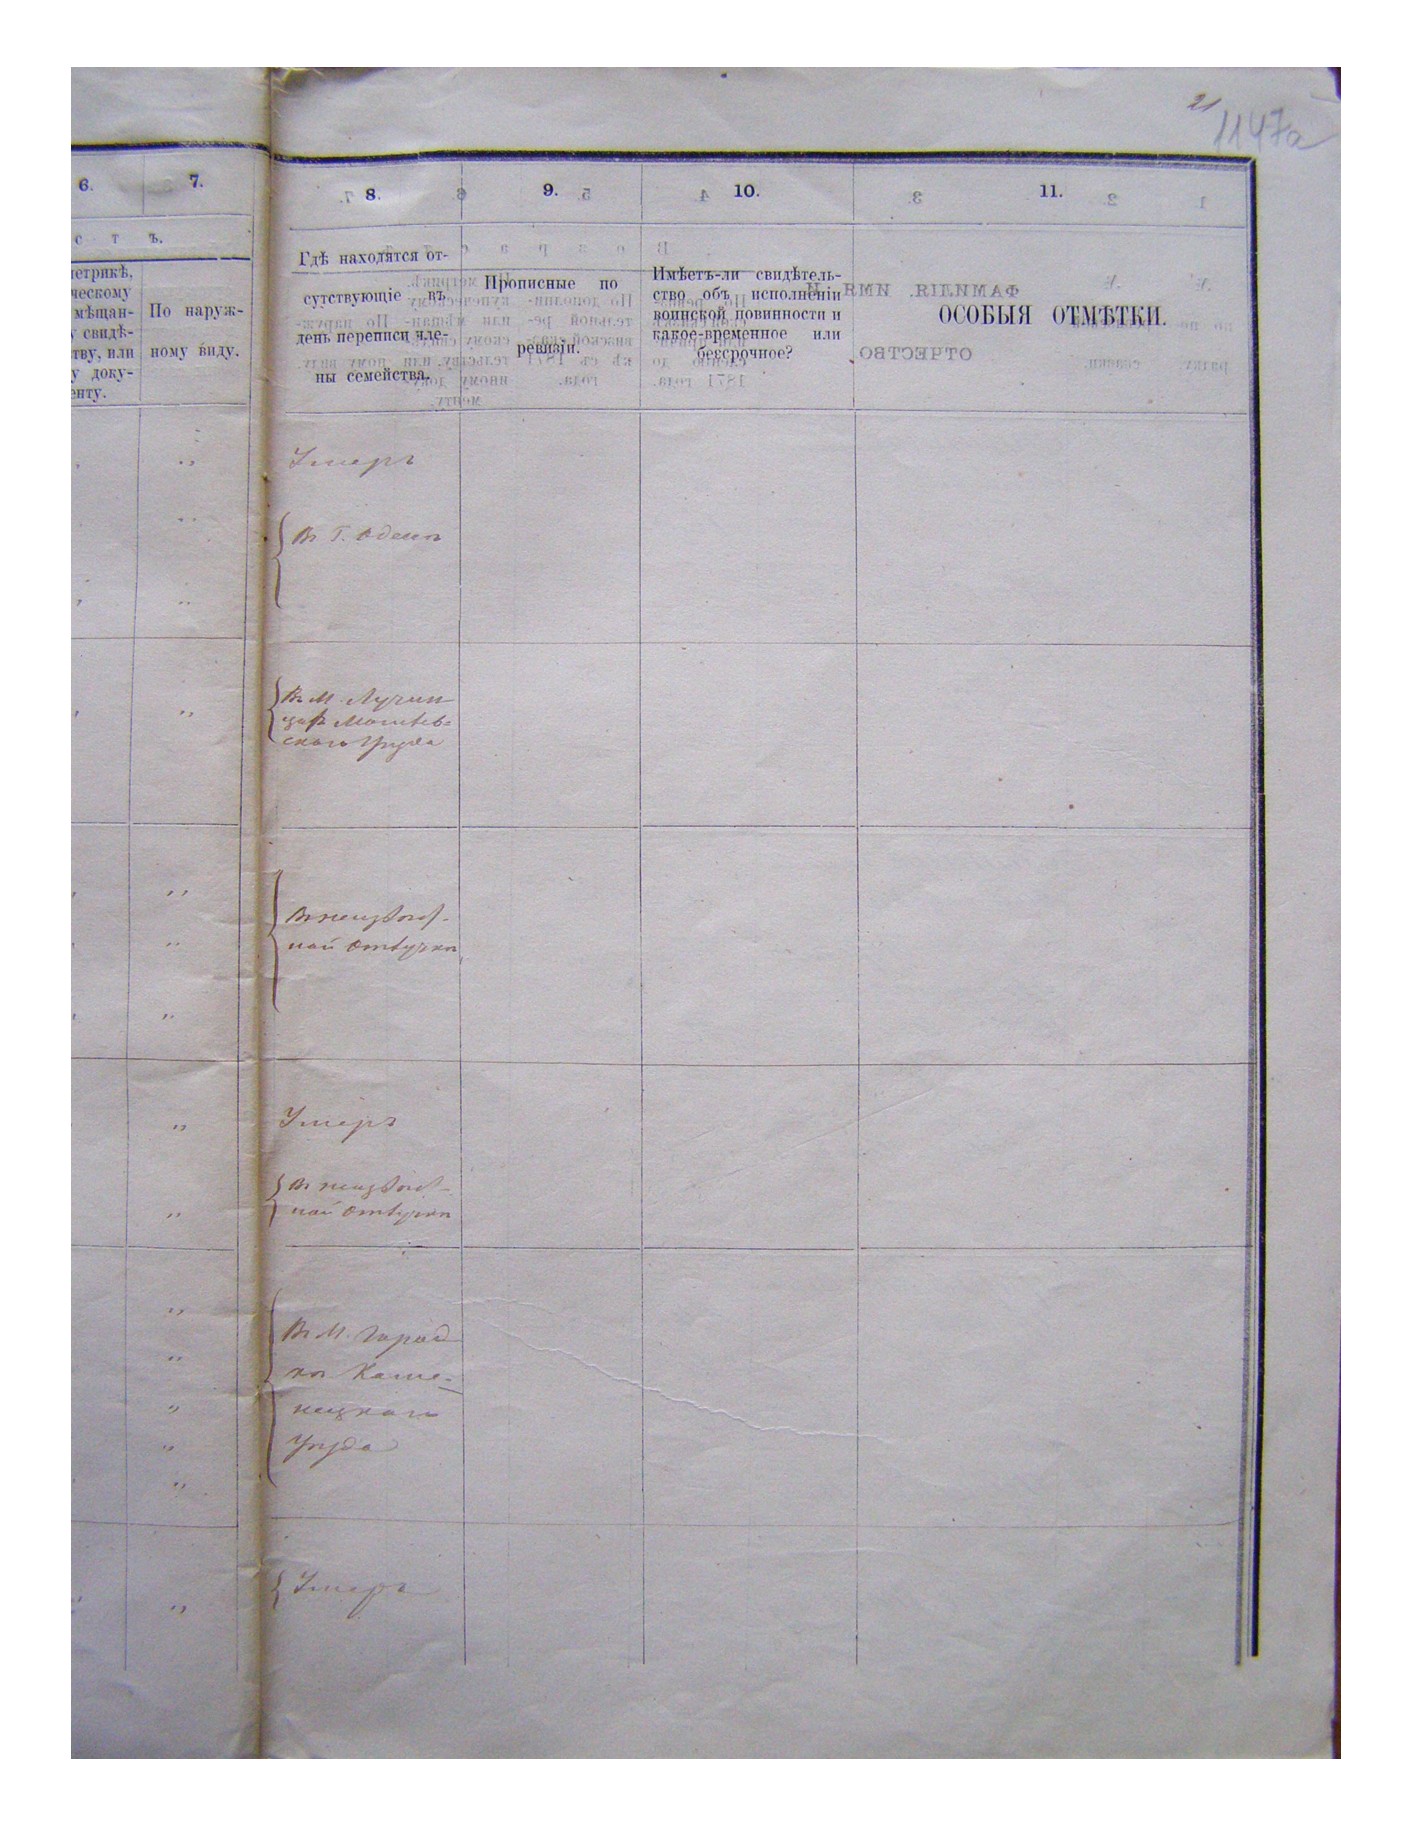 21
1147а
6.
7.
8.
9.
10.
11.
с т ъ.
метрикѣ,
ческому
мѣщан-
у свидѣ-
ству, или
у доку-
енту.
По наруж-
ному виду.
Гдѣ находятся от-
сутствующіе въ
день переписи чле-
ны семейства.
Прописные по
ревизіи.
Имѣетъ-ли свидѣтель-
ство объ исполненіи
воинской повинности и
какое-временное или
безсрочное?
ОСОБЫЯ ОТМѢТКИ.
Умеръ
Въ Г. Одессѣ
Въ М. Лучин
цѣ Могилев-
скаго Уѣзда
Въ неизвѣст-
ной отлучкѣ
Умеръ
Въ неизвѣст-
ной отлучкѣ
Въ М. Город
кѣ Каме-
нецкаго
Уѣзда
Умеръ